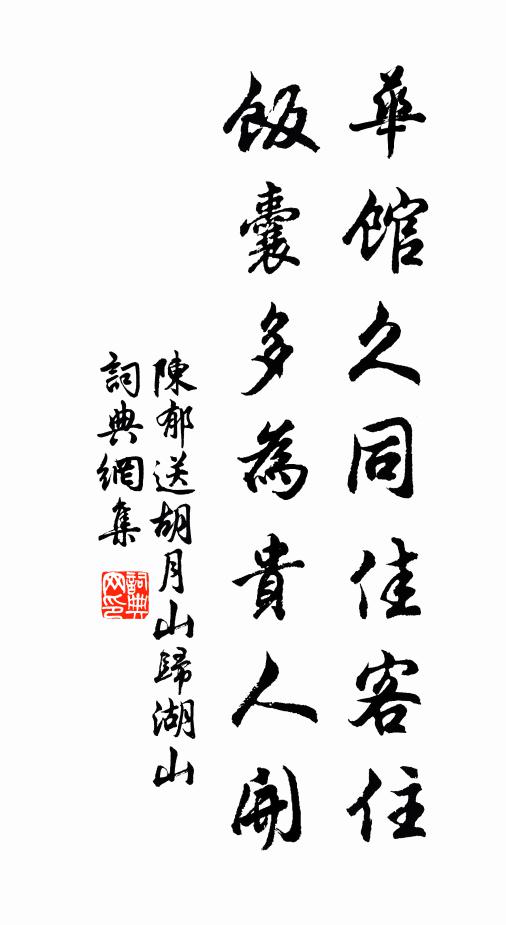 華館久同佳客住
飯囊多為貴人開
陳郁送胡月山歸湖山
詞典網集
詞典网印